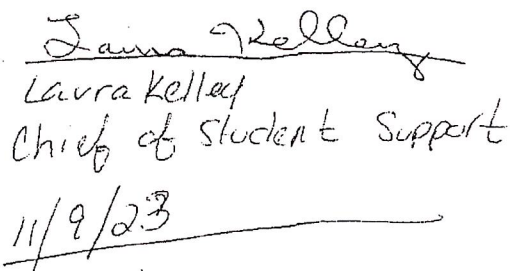 Laura Kelley
Laura Kelley
Chief of Student Support
11/9/23